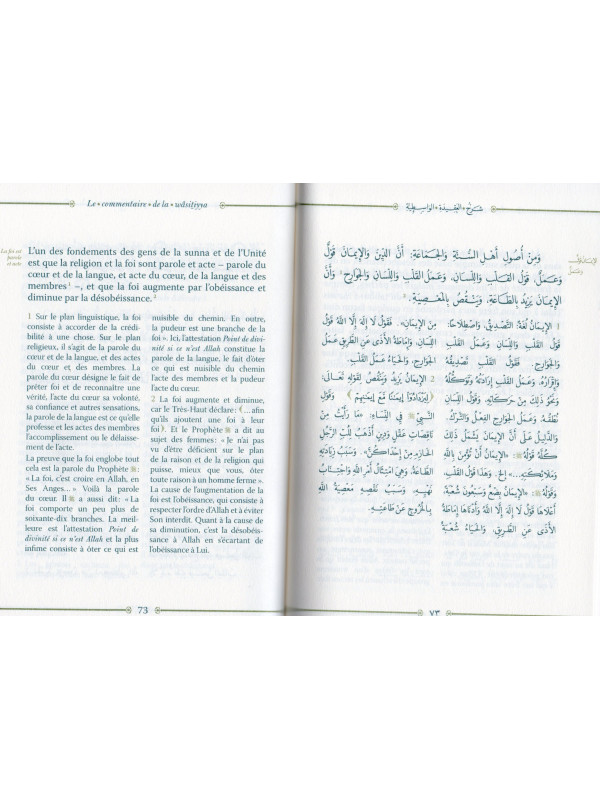 Le • commentaire • de la • wâsiṭiyya
La foi est
parole
et acte
L'un des fondements des gens de la sunna et de l'Unité
est que la religion et la foi sont parole et acte – parole du
cœur et de la langue, et acte du cœur, de la langue et des
membres¹ –, et que la foi augmente par l'obéissance et
diminue par la désobéissance.²
1 Sur le plan linguistique, la foi
consiste à accorder de la crédi-
bilité à une chose. Sur le plan
religieux, il s'agit de la parole du
cœur et de la langue, et des actes
du cœur et des membres. La
parole du cœur désigne le fait de
prêter foi et de reconnaître une
vérité, l'acte du cœur sa volonté,
sa confiance et autres sensations,
la parole de la langue est ce qu'elle
professe et les actes des membres
l'accomplissement ou le délaisse-
ment de l'acte.
La preuve que la foi englobe tout
cela est la parole du Prophète ﷺ :
« La foi, c'est croire en Allah, en
Ses Anges… » Voilà la parole
du cœur. Il ﷺ a aussi dit : « La
foi comporte un peu plus de
soixante-dix branches. La meil-
leure est l'attestation Point de
divinité si ce n'est Allah et la plus
infime consiste à ôter ce qui est
nuisible du chemin. En outre,
la pudeur est une branche de la
foi ». Ici, l'attestation Point de divi-
nité si ce n'est Allah constitue la
parole de la langue, le fait d'ôter
ce qui est nuisible du chemin
l'acte des membres et la pudeur
l'acte du cœur.
2 La foi augmente et diminue,
car le Très-Haut déclare : ﴾…afin
qu'ils ajoutent une foi à leur
foi﴿. Et le Prophète ﷺ a dit au
sujet des femmes : « Je n'ai pas
vu d'être déficient sur le plan
de la raison et de la religion qui
puisse, mieux que vous, ôter
toute raison à un homme ferme ».
La cause de l'augmentation de la
foi est l'obéissance, qui consiste à
respecter l'ordre d'Allah et à éviter
Son interdit. Quant à la cause de
sa diminution, c'est la désobéis-
sance à Allah en s'écartant de
l'obéissance à Lui.
73
شرح • العقيدة • الواسطية
الإيمان قول
وعمل
وَمِنْ أُصُولِ أَهْلِ السُّنَّةِ وَالْجَمَاعَةِ: أَنَّ الدِّينَ وَالْإِيمَانَ قَوْلٌ
وَعَمَلٌ، قَوْلُ الْقَلْبِ وَاللِّسَانِ، وَعَمَلُ الْقَلْبِ وَاللِّسَانِ وَالْجَوَارِحِ¹ وَأَنَّ
الْإِيمَانَ يَزِيدُ بِالطَّاعَةِ، وَيَنْقُصُ بِالْمَعْصِيَةِ.²
١ الْإِيمَانُ لُغَةً: التَّصْدِيقُ، وَاصْطِلَاحًا:
قَوْلُ الْقَلْبِ وَاللِّسَانِ، وَعَمَلُ الْقَلْبِ
وَالْجَوَارِحِ. فَقَوْلُ الْقَلْبِ تَصْدِيقُهُ
وَإِقْرَارُهُ، وَعَمَلُ الْقَلْبِ إِرَادَتُهُ وَتَوَكُّلُهُ
وَنَحْوُ ذَلِكَ مِنْ حَرَكَاتِهِ، وَقَوْلُ اللِّسَانِ
نُطْقُهُ، وَعَمَلُ الْجَوَارِحِ الْفِعْلُ وَالتَّرْكُ.
وَالدَّلِيلُ عَلَى أَنَّ الْإِيمَانَ يَشْمَلُ ذَلِكَ
كُلَّهُ قَوْلُهُ ﷺ: «الْإِيمَانُ أَنْ تُؤْمِنَ بِاللَّهِ
وَمَلَائِكَتِهِ...» إلخ. وَهَذَا قَوْلُ الْقَلْبِ،
وَقَوْلُهُ ﷺ: «الْإِيمَانُ بِضْعٌ وَسَبْعُونَ شُعْبَةً،
أَعْلَاهَا قَوْلُ لَا إِلَهَ إِلَّا اللَّهُ وَأَدْنَاهَا إِمَاطَةُ
الْأَذَى عَنِ الطَّرِيقِ، وَالْحَيَاءُ شُعْبَةٌ
مِنَ الْإِيمَانِ». فَقَوْلُ لَا إِلَهَ إِلَّا اللَّهُ قَوْلُ
اللِّسَانِ وَإِمَاطَةُ الْأَذَى عَنِ الطَّرِيقِ عَمَلُ
الْجَوَارِحِ، وَالْحَيَاءُ عَمَلُ الْقَلْبِ.
٢ الْإِيمَانُ يَزِيدُ وَيَنْقُصُ لِقَوْلِهِ تَعَالَى:
﴿لِيَزْدَادُوا إِيمَانًا مَعَ إِيمَانِهِمْ﴾ وَقَوْلِ
النَّبِيِّ ﷺ فِي النِّسَاءِ: «مَا رَأَيْتُ مِنْ
نَاقِصَاتِ عَقْلٍ وَدِينٍ أَذْهَبَ لِلُبِّ الرَّجُلِ
الْحَازِمِ مِنْ إِحْدَاكُنَّ». وَسَبَبُ زِيَادَتِهِ
الطَّاعَةُ، وَهِيَ امْتِثَالُ أَمْرِ اللَّهِ وَاجْتِنَابُ
نَهْيِهِ. وَسَبَبُ نَقْصِهِ مَعْصِيَةُ اللَّهِ
بِالْخُرُوجِ عَنْ طَاعَتِهِ.
٧٣